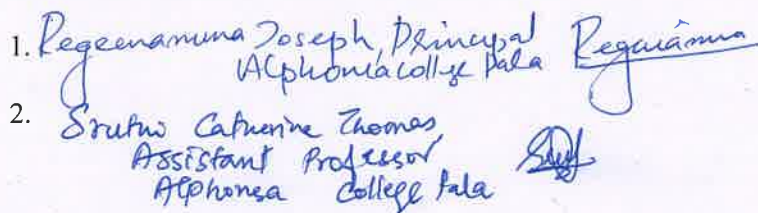 1. Regeenamma Joseph, Principal Regeenamma
Alphonsa College Pala
2. Sruthi Catherine Thomas,
Assistant Professor
Alphonsa College Pala